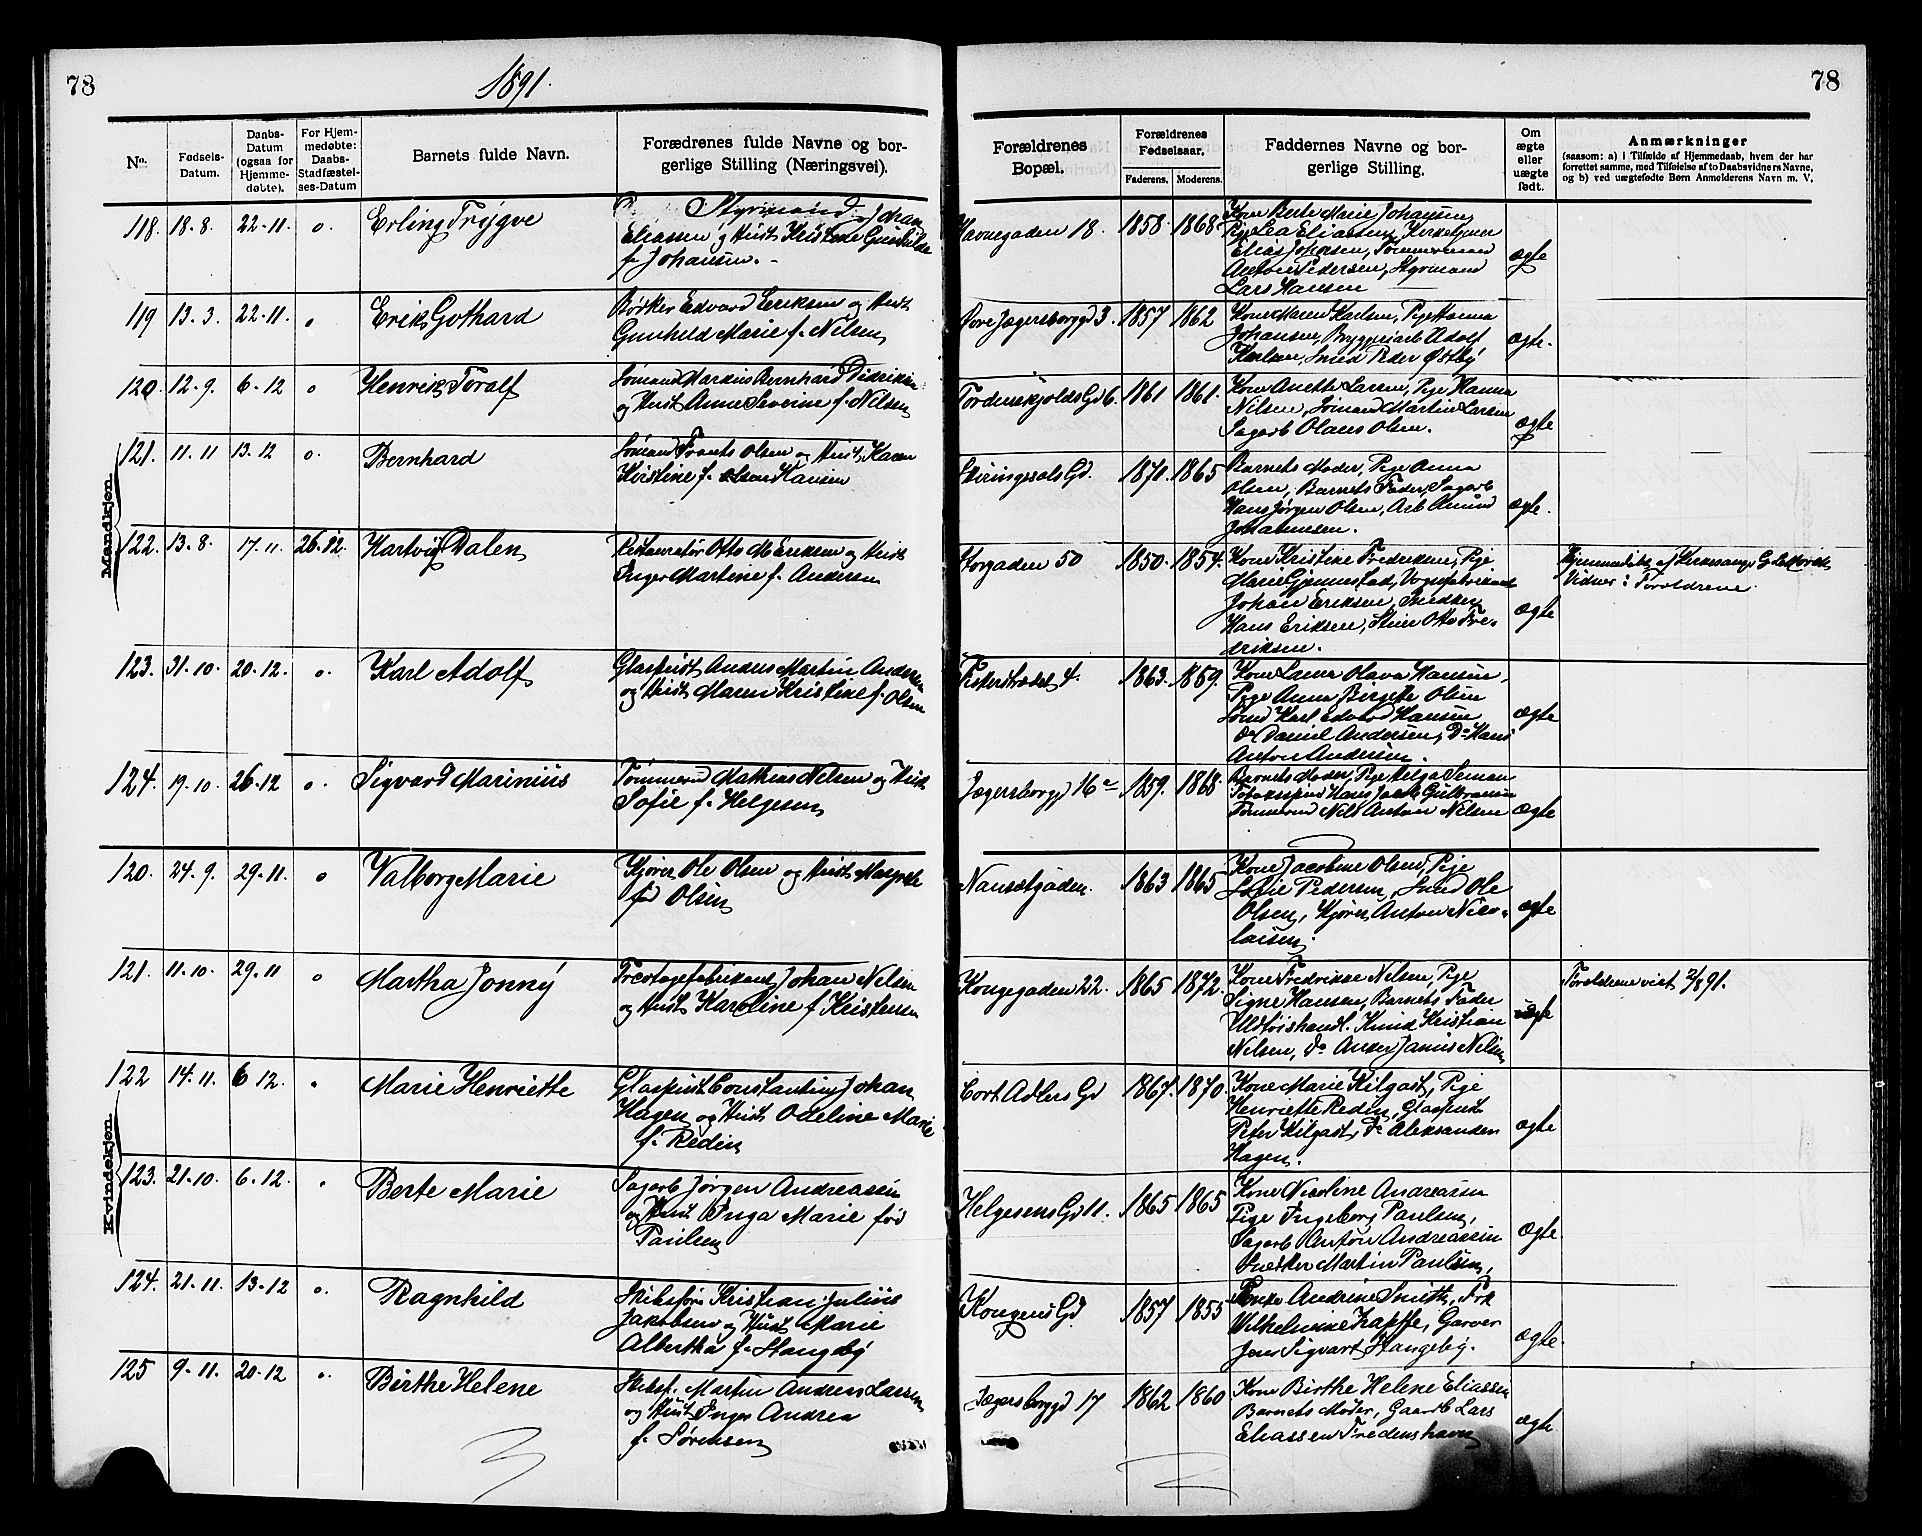 78
1891.
78
No.
Fødsels-
Datum.
Daabs-
Datum
(ogsaa for
Hjemme-
døbte).
For Hjem-
medøbte:
Daabs-
Stadfæstel-
ses-Datum
Barnets fulde Navn.
Forædrenes fulde Navne og bor-
gerlige Stilling (Næringsvei).
Forældrenes
Bopæl.
Forældrenes
Fødselsaar.
Faderens.
Moderens.
Faddernes Navne og bor-
gerlige Stilling.
Om
ægte
eller
uægte
født.
Anmærkninger
(saasom: a) i Tilfælde af Hjemmedaab, hvem der har
forrettet samme, med Tilføielse af to Daabsvidners Navne,
og b) ved uægtefødte Børn Anmelderens Navn m. V.
Mandkjøn
118. 18-8. 22-11. o. Erling Trygve
Styrmand Johan
Eliassen og Hust Kristine Gunhilde
f. Johansen.
Havnegaden 18. 1858 1868
Kone Berte Marie Johansen,
Pige Lea Eliassen, Kirketjener
Elias Johansen, Tømmermand
Anton Pedersen, Styrmand
Lars Hansen
ægte
119 13.3. 22-11. o Erik Gothard
Bødker Edvard Eriksen og Hust
Gunhild Marie f. Nilsen
Øvre Jægersborggd 3. 1857 1862
Kone Maren Karlsen, Pige Hanna
Johansen, Bryggeriarb Adolf
Karlsen, Smed Peder Østby
ægte.
120. 12-9. 6-12 o Henrik Toralf
Sømand Markus Bernhard Didriksen
og Hust Anne Severine f. Nilsen
Tordenskjolds Gd 6. 1861 1861.
Kone Anette Larsen, Pige Hanna
Nilsen, Sømand Martin Larsen
Sagarb Olaus Olsen.
ægte
121. 11-11 13-12 o. Bernhard
Sømand Frants Olsen og Hust Karen
Kirstine f. Hansen
Skiringssals Gd. 1870. 1865
Barnets Moder, Pige Anna
Olsen, Barnets Fader, Sagarb
Hans Jørgen Olsen, Arb Amund
Johannesen.
ægte.
122. 13-8. 17-11. 26-12. Hartvig Dalen
Restauratør Otto M Eriksen og Hust
Inger Martine f. Andersen
Storgaden 50 1850. 1854.
Kone Kristine Frederiksen, Pige
Marie Gjennestad, Vognfabrikant
Johan Eriksen, Snedker
Hans Eriksen, Otto Fre-
driksen.
ægte
Hjemmedøbt af Kirkesanger
Vidner: Forældrene
123. 31-10. 20-12. o. Karl Adolf
Glaspust Anders Martin Andersen
og Hust Maren Kristine f. Olsen
Fiskerstrædet 4. 1863. 1869.
Kone Laura Olava Hansen,
Pige Anna Birgitte Olsen
Karl Edvard Hansen
Do Daniel Andersen, Do Hans
Anton Andersen.
ægte
124. 19-10. 26-12 o. Sigvard Marinius
Tømmerm Mathias Nilsen og Hust
Sofie f. Helgesen
Jægersborggd 16 a 1859. 1868.
Barnets Moder, Pige Helga Seman
Tobaksspind Hans Jacob Gulbransen
Tømmerm Nils Anton Nilsen
ægte
Kvindekjøn
120. 24-9. 29-11. o Valborg Marie
Kjører Ole Olsen og Hust Margrethe
fød Olsen
Nansetgaden. 1863 1865
Kone Jacobine Olsen, Pige
Sofie Pedersen, Smed Ole
Olsen, Kjører Anton Nico-
laisen.
ægte
121. 11-10. 29-11 o Martha Jonny
Trævarefabrikand Johan Nilsen
og Hust Karoline f Kristensen
Kongegaden 22. 1865 1872.
Kone Fredrikke Nilsen, Pige
Signe Hansen, Barnets Fader
Uldtøishandl. Knud Kristian
Nilsen, Do Anders Janus Nilsen
ægte
Forældrene viet 2/8 91.
122 14-11. 6 12. Marie Henriette
Glaspust Constantin Johan
Hagen og Hust Odeline Marie
f. Redin
Cort Adlers Gd 1867. 1870.
Kone Marie Kilgast, Pige
Henriette Redin, Glaspust
Peter Kilgast, Do Aleksander
Hagen.
ægte
123. 21-10. 6-12. Berte Marie
Sagarb Jørgen Andreassen
og Hust Inga Marie fød
Paulsen
Helgesens Gd 11. 1865 1865
Kone Nicoline Andreassen
Pige Ingeborg Paulsen,
Sagarb Anton Andreassen
Snedker Martin Paulsen,
ægte
124. 21-11. 13-12 o. Ragnhild
Skibsfører Kristian Julius
Jakobsen og Hust Marie
Albertha f. Stangeby
Kongens Gd 1857 1855
Enke Andrine Smith, Frk
Vilhelmine Kapffe, Garver
Jens Sigvart Stangeby.
ægte
125 9-11. 20-12 o. Birthe Helene
Skibsf. Martin Andreas Larsen
og Hust Inger Andrea
f. Sørensen
Jægersborggd 17 1862 1860
Kone Birthe Helene Eliassen
Barnets Moder, Gaardb Lars
Eliassen Fredenshavn
ægte